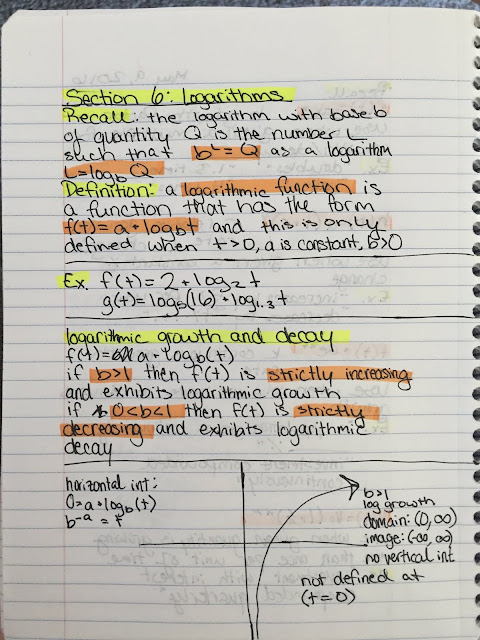 Section 6: logarithms
Recall: the logarithm with base b
of quantity Q is the number L
such that b^L = Q as a logarithm
L = log_b Q
Definition: a logarithmic function is
a function that has the form
f(t) = a + log_b t and this is only
defined when t > 0, a is constant, b > 0
Ex. f(t) = 2 + log_2 t
g(t) = log_5(16) + log_1.3 t
logarithmic growth and decay
f(t) = a + log_b(t)
if b > 1 then f(t) is strictly increasing
and exhibits logarithmic growth
if 0 < b < 1 then f(t) is strictly
decreasing and exhibits logarithmic
decay
horizontal int:
0 = a + log_b(t)
b^-a = t
b > 1
log growth
domain: (0, ∞)
image: (-∞, ∞)
no vertical int
not defined at
(t = 0)